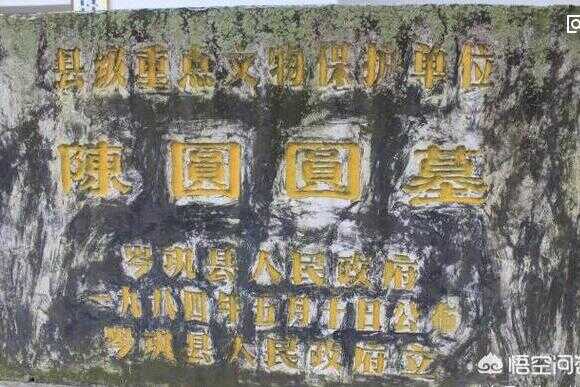 县级重点文物保护单位
陳圓圓墓
岑巩县人民政府
一九八四年五月十日公布
岑巩县人民政府立
悟空问答